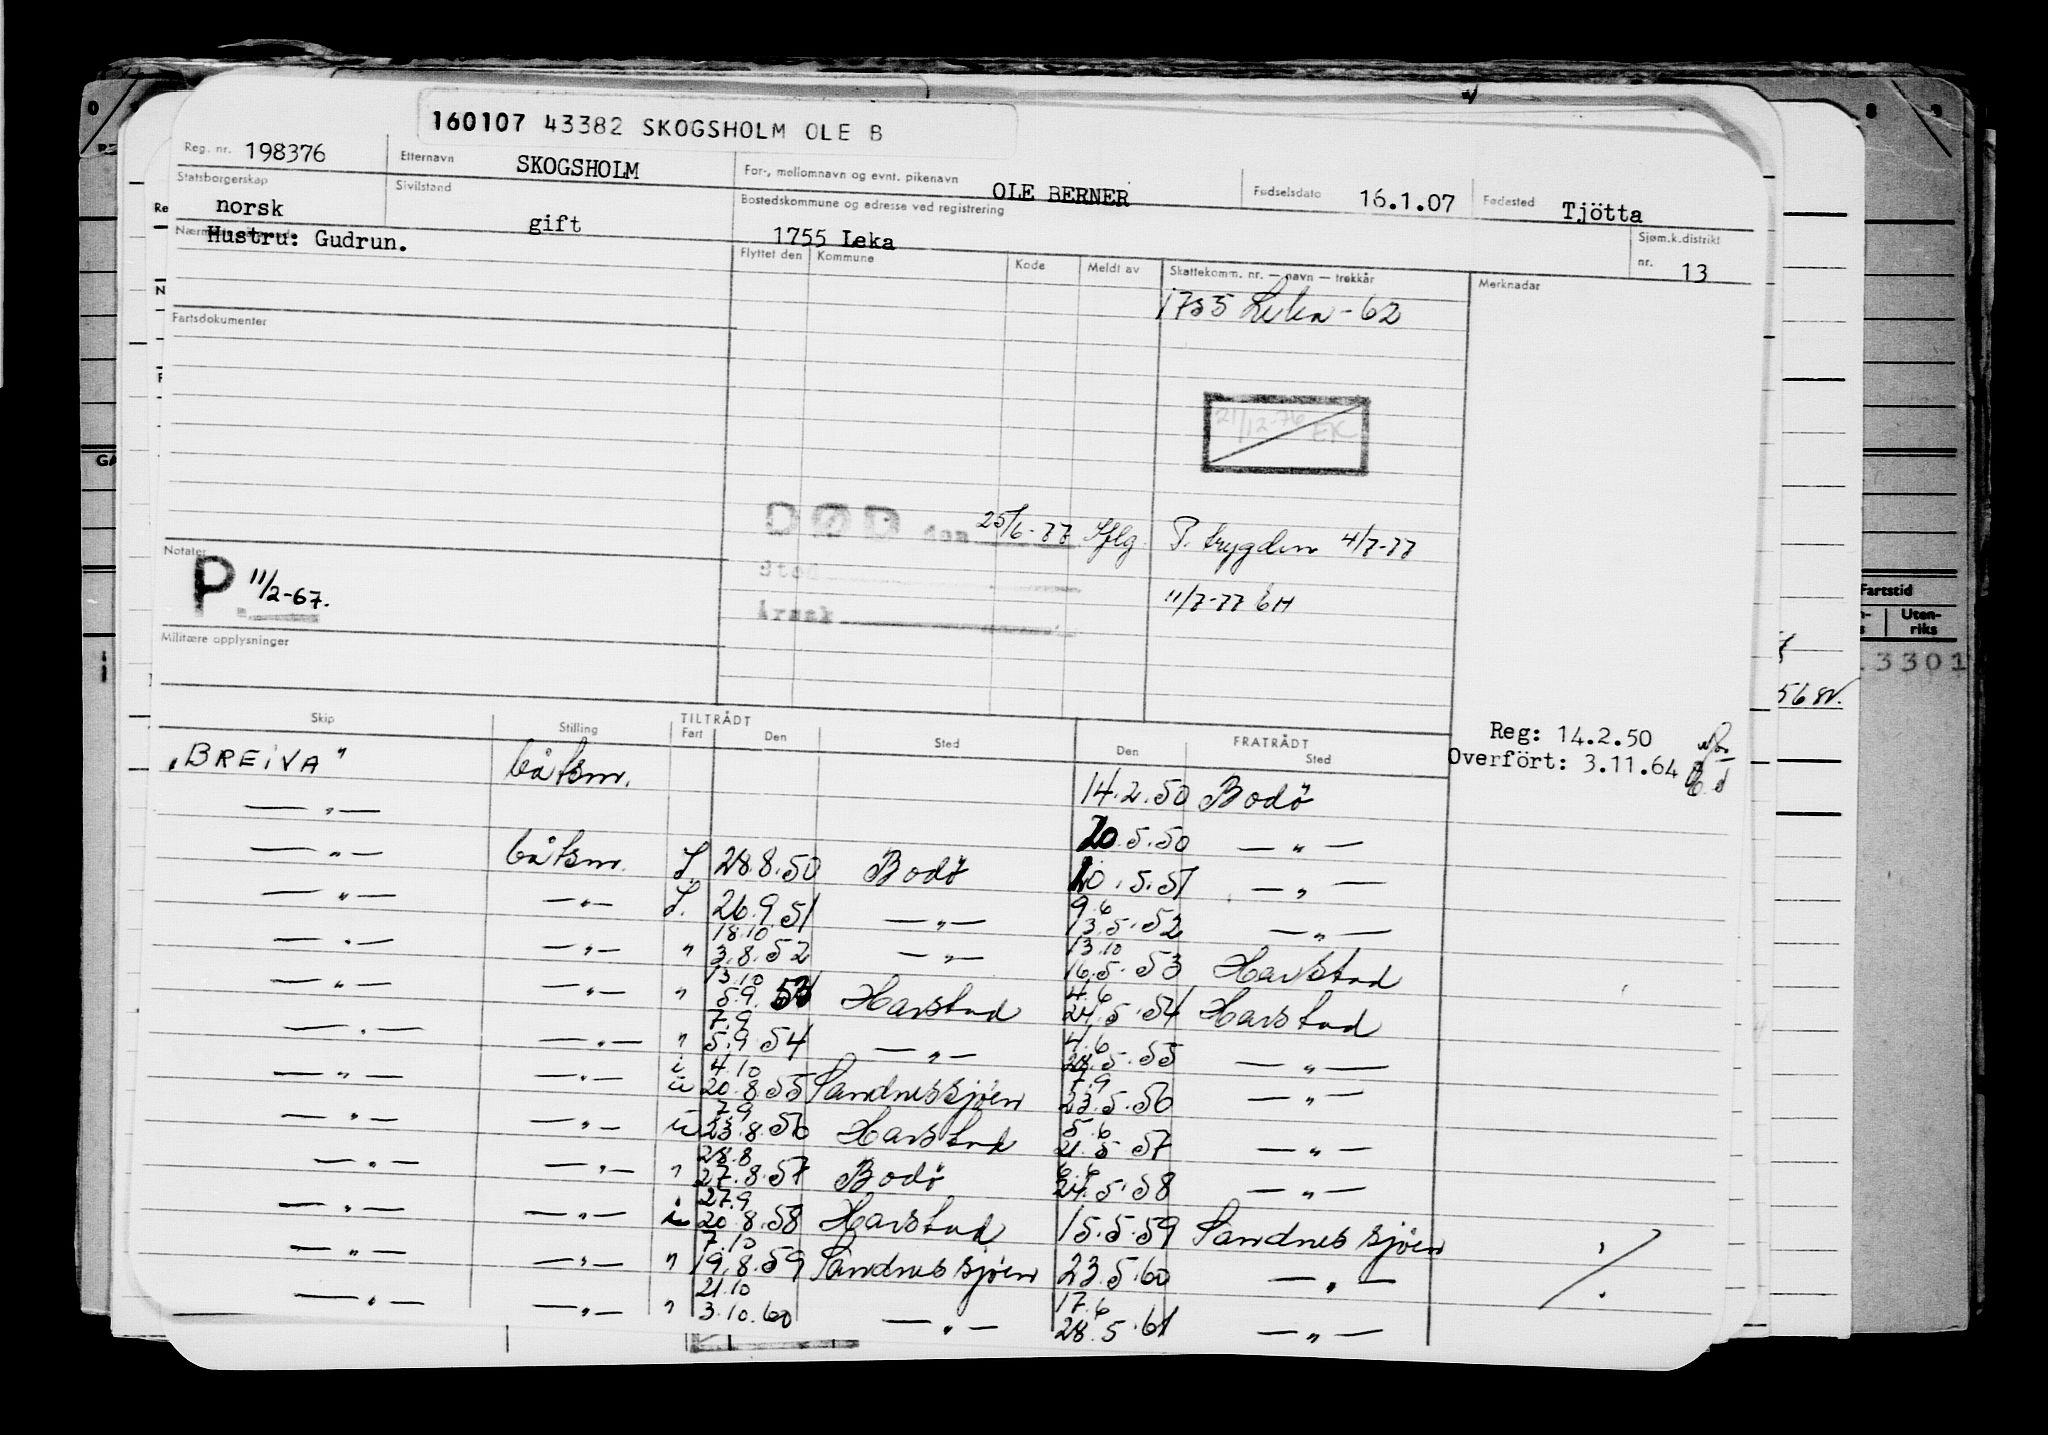 160107 43382 SKOGSHOLM OLE B
Reg. nr. 198376 Etternavn SKOGSHOLM For-, mellomnavn og evnt. pikenavn OLE BERNER Fødselsdato 16.1.07 Fødested Tjötta
Statsborgerskap norsk Sivilstand gift Bostedskommune og adresse ved registrering 1755 Leka Sjøm.k.distrikt nr. 13
Hustru: Gudrun.
Flyttet den Kommune Kode Meldt av Skattekomm. nr. — navn — trekkår Merknader
1755 Leka - 62
Fartsdokumenter
21/12-76 EK
DØD den 25/6-77 Sflg. P. trygden 4/7-77
Sted
Notater
P 11/2-67.
11/7-77 6H
Årsak
Militære opplysninger
Skip Stilling TILTRÅDT Fart Den Sted FRATRÅDT Den Sted
Reg: 14.2.50
Overfört: 3.11.64
"BREIVA" båtsm. 14.2.50 Bodö
— " — 20.5.50 — " —
— " — båtsm. 28.8.50 Bodö 20.5.51 — " —
— " — — " — 26.9.51 — " — 9.6 13.5.52 — " —
— " — — " — " 18.10 3.8.52 — " — 13.10 16.5.53 Harstad
— " — — " — " 13.10 5.9.53 Harstad 4.6 24.5.54 Harstad
— " — — " — " 7.9 5.9.54 — " — 4.6 28.5.55 — " —
— " — — " — i u 4.10 20.8.55 Sandnessjøen 7.9 23.5.56 — " —
— " — — " — u 7.9 23.8.56 Harstad 5.6 21.5.57 — " —
— " — — " — " 28.8 27.8.57 Bodö 6.6 24.5.58 — " —
— " — — " — 27.9 20.8.58 Harstad 15.5.59 Sandnessjøen
— " — — " — " 7.10 19.8.59 Sandnessjøen 23.5.60 — " —
— " — — " — " 21.10 3.10.60 — " — 17.6 28.5.61 — " —
./.
Fartstid
Uten-
riks
3301